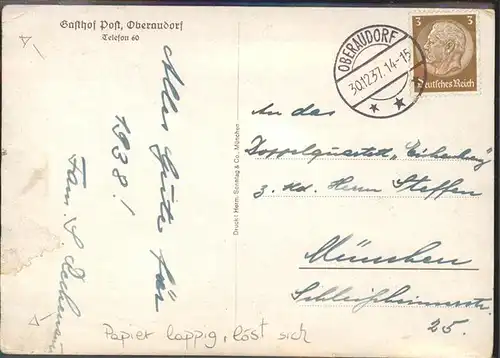 Gasthof Post, Oberaudorf
Telefon 60
Alles Gute für
1938!
Fam. S.
Druck: Herm. Sonntag & Co., München
OBERAUDORF
30.12.37. 14-15
3 3
Deutsches Reich
An das
Doppelquartett „Eichenberg“
z. Hd. Herrn Steffen
München
Schleißheimerstr.
25.
Papier lappig, löst sich